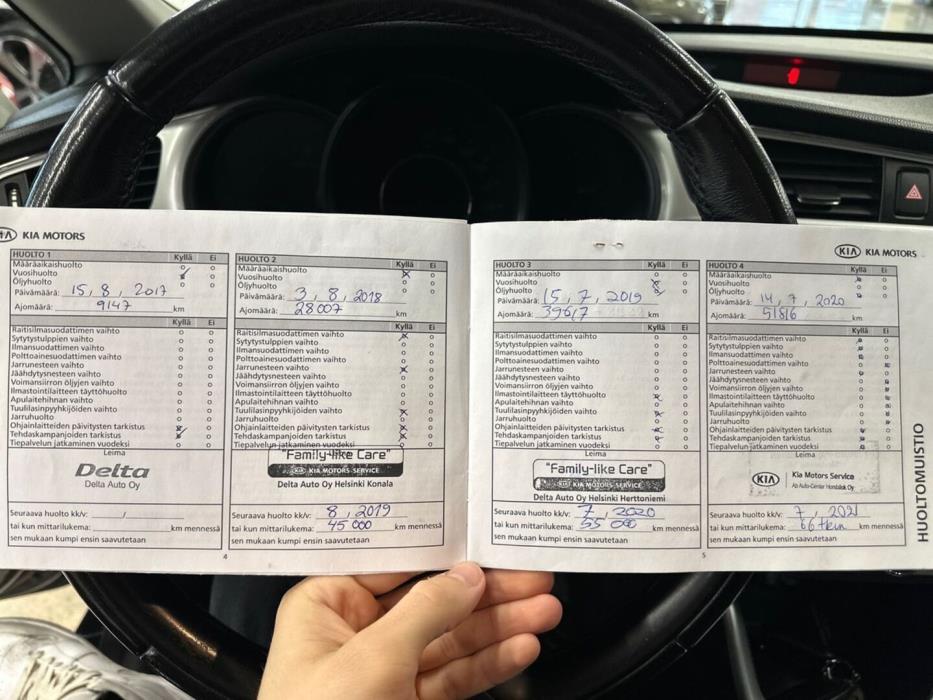 KIA KIA MOTORS
HUOLTO 1 Kyllä Ei
Määräaikaishuolto
Vuosihuolto
Öljyhuolto
Päivämäärä: 15, 8, 2017
Ajomäärä: 9147 km
Kyllä Ei
Raitisilmasuodattimen vaihto
Sytytystulppien vaihto
Ilmansuodattimen vaihto
Polttoainesuodattimen vaihto
Jarrunesteen vaihto
Jäähdytysnesteen vaihto
Voimansiirron öljyjen vaihto
Ilmastointilaitteen täyttöhuolto
Apulaitehihnan vaihto
Tuulilasinpyyhkijöiden vaihto
Jarruhuolto
Ohjainlaitteiden päivitysten tarkistus
Tehdaskampanjoiden tarkistus
Tiepalvelun jatkaminen vuodeksi
Leima
Delta
Delta Auto Oy
Seuraava huolto kk/v: /
tai kun mittarilukema: km mennessä
sen mukaan kumpi ensin saavutetaan
4
HUOLTO 2 Kyllä Ei
Määräaikaishuolto
Vuosihuolto
Öljyhuolto
Päivämäärä: 3, 8, 2018
Ajomäärä: 28007 km
Kyllä Ei
Raitisilmasuodattimen vaihto
Sytytystulppien vaihto
Ilmansuodattimen vaihto
Polttoainesuodattimen vaihto
Jarrunesteen vaihto
Jäähdytysnesteen vaihto
Voimansiirron öljyjen vaihto
Ilmastointilaitteen täyttöhuolto
Apulaitehihnan vaihto
Tuulilasinpyyhkijöiden vaihto
Jarruhuolto
Ohjainlaitteiden päivitysten tarkistus
Tehdaskampanjoiden tarkistus
Tiepalvelun jatkaminen vuodeksi
"Family-like Care"
KIA KIA MOTORS SERVICE
Delta Auto Oy Helsinki Konala
Seuraava huolto kk/v: 8, 2019
tai kun mittarilukema: 45 000 km mennessä
sen mukaan kumpi ensin saavutetaan
KIA KIA MOTORS
HUOLTO 3 Kyllä Ei
Määräaikaishuolto
Vuosihuolto
Öljyhuolto
Päivämäärä: 15, 7, 2019
Ajomäärä: 39617 km
Kyllä Ei
Raitisilmasuodattimen vaihto
Sytytystulppien vaihto
Ilmansuodattimen vaihto
Polttoainesuodattimen vaihto
Jarrunesteen vaihto
Jäähdytysnesteen vaihto
Voimansiirron öljyjen vaihto
Ilmastointilaitteen täyttöhuolto
Apulaitehihnan vaihto
Tuulilasinpyyhkijöiden vaihto
Jarruhuolto
Ohjainlaitteiden päivitysten tarkistus
Tehdaskampanjoiden tarkistus
Tiepalvelun jatkaminen vuodeksi
Leima
"Family-like Care"
KIA KIA MOTORS SERVICE
Delta Auto Oy Helsinki Herttoniemi
Seuraava huolto kk/v: 7, 2020
tai kun mittarilukema: 55 000 km mennessä
sen mukaan kumpi ensin saavutetaan
5
HUOLTO 4 Kyllä Ei
Määräaikaishuolto
Vuosihuolto
Öljyhuolto
Päivämäärä: 14, 7, 2020
Ajomäärä: 51816 km
Kyllä Ei
Raitisilmasuodattimen vaihto
Sytytystulppien vaihto
Ilmansuodattimen vaihto
Polttoainesuodattimen vaihto
Jarrunesteen vaihto
Jäähdytysnesteen vaihto
Voimansiirron öljyjen vaihto
Ilmastointilaitteen täyttöhuolto
Apulaitehihnan vaihto
Tuulilasinpyyhkijöiden vaihto
Jarruhuolto
Ohjainlaitteiden päivitysten tarkistus
Tehdaskampanjoiden tarkistus
Tiepalvelun jatkaminen vuodeksi
Leima
KIA Kia Motors Service
Ab Auto-Center Hondalok Oy
Seuraava huolto kk/v: 7, 2021
tai kun mittarilukema: 66 tkm km mennessä
sen mukaan kumpi ensin saavutetaan
HUOLTOMUISTIO